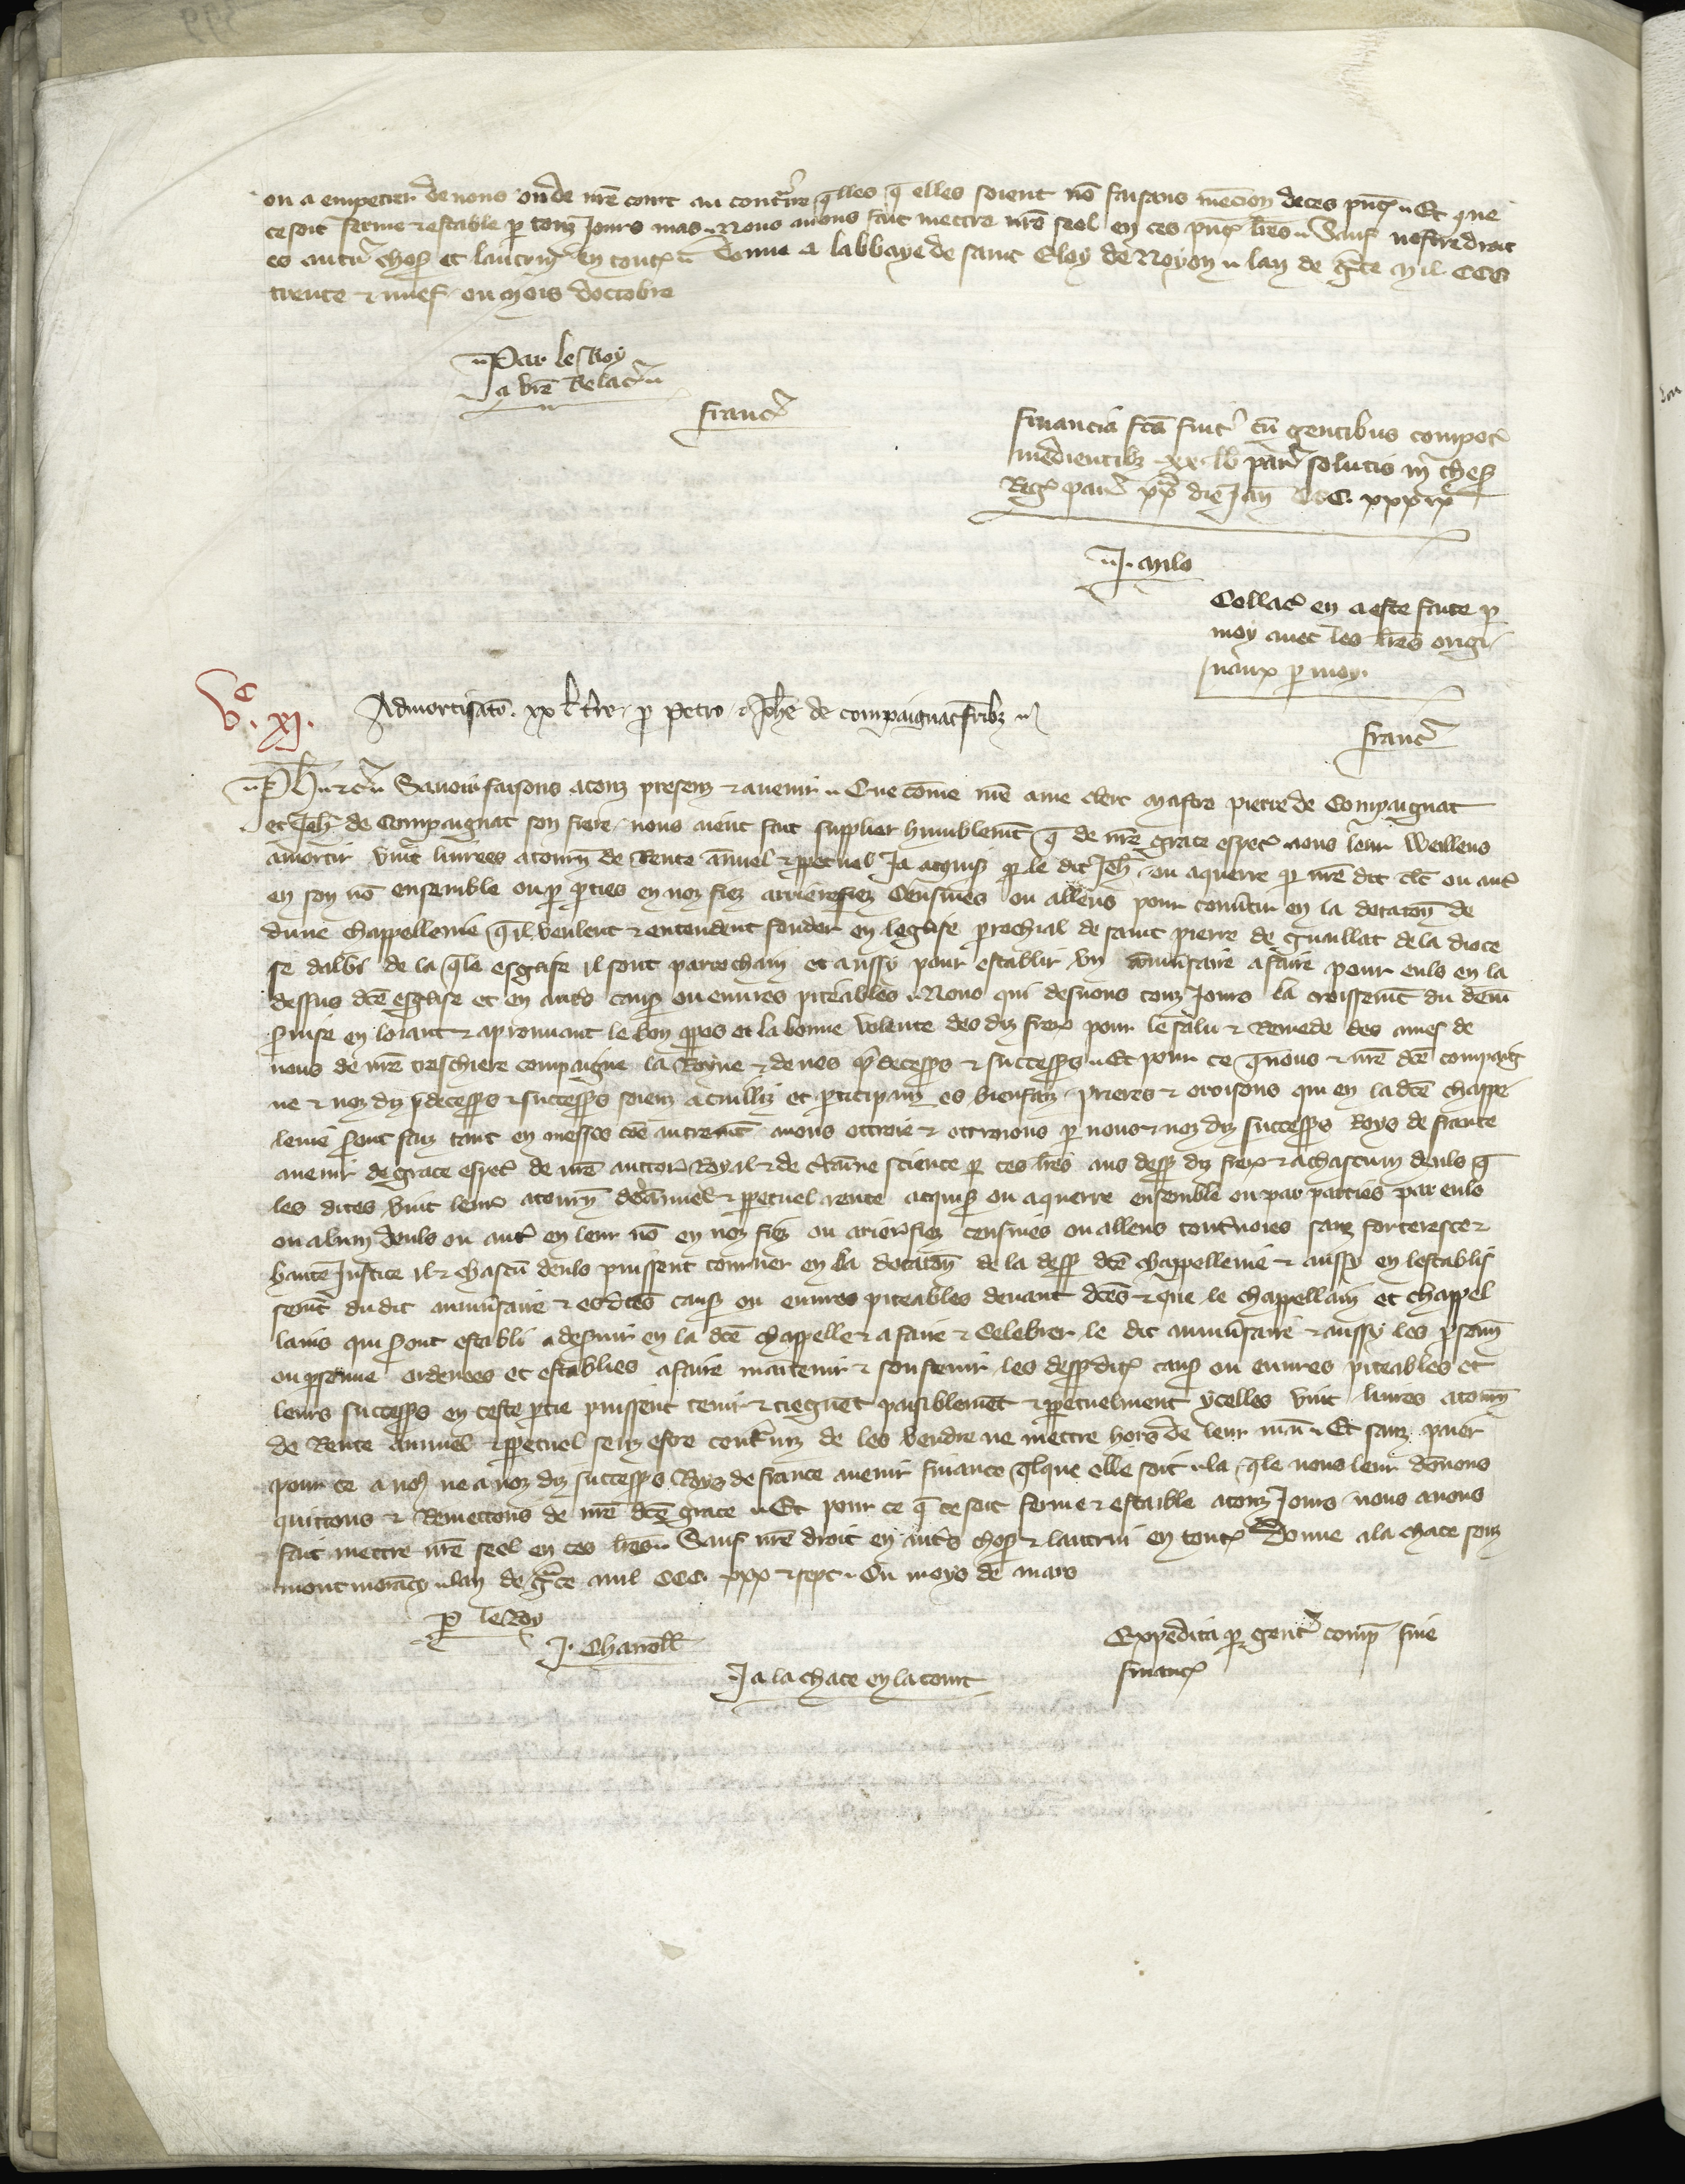 ou a empetrer de nous ou de nre court au contraire qlles q elles soient no faisans mencion de ces pnt Et que
ce soit ferme & estable p touz Jours mas Nous auons fait mettre nre seel en ces pnt lres Sauf nostre droit
es autr choses et lautruy en tout Donne a labbaye de saint Eloy de Noyon lan de grce Mil CCC
trente & nuef ou mois doctobre
Par le Roy
a vre Relac
franc
financia fca fuit cu gentibus compot
mediantibz xx lb par solutis in thes
Reg par die Jan CCC xxxix
J. Milo
Collac en a este faite p
moy auec les lres origi
naux p moy
franc
Vc. XJ. Admortisato xx l tre p Petro & Johe de compaignac fribz
Ph & c Sauoir faisons a touz presenz & auenir Que come nre ame clerc Maistre pierre de Compaignac
et Jeh de Compaignac son frere nous aient fait supplier humblemt q de nre grace espec nous leur weillens
amortir vint liurees a tourn de Rente annuel & ppetuel Ja acquis p le dit Jeh ou aquerre p nre dit clc ou autr
en son no ensemble ou p pties en noz fiez arrierefiez Censiues ou alleus pour conutir en la dotaton de
dune chappellenie qil veulent & entendent fonder en leglise parrochial de saint pierre de Guaillac de la dioce
se dalbi de la qle esglise il sont parrochain et aussy pour establir vn anniusaire a faire pour euls en la
dessus dce esglise et en autrs caus ou euures piteables Nous qui desirons touz Jours la croissemt du deuin
suise en loiant & aprouuant le bon ppos et la bonne volente des diz freres pour le salu & Remede des ames de
nous de nre treschiere compaigne la Royne & de nos pdecessrs & successrs Et pour ce q nous & nre dce compaig
ne & noz diz pdecessrs & successrs soiens acuilliz et pticipanz es bienfaiz prieres & oroisons qui en la dce chappe
lenie sont faiz tant en messes coe autremt auons ottroie & ottroions p nous & noz diz successrs Roys de france
auenir de grace espec de nre auctor Royal & de certaine science p ces lres aus dess diz freres & a chascun deuls q
les dites vint liurees a tourn de annuel & ppetuel rente acquis ou aquerre ensemble ou par parties par euls
ou alcun deuls ou autr en leur no en noz fiez ou arrierefiez censiues ou alleus sanz forteresce &
haute Justice il & chascu deuls puissent tourner en la dotaton de la dess dce chappellenie & aussy en lestablis
semt du dit anniusaire & es dces caus ou euures piteables deuant dces & que le chappellain et chappel
lains qui sont establi a desruir en la dce chappelle & a faire & celebrer le dit anniusaire & aussy les psones
ou psonne ordenees et establies a faire maitenir & soustenir les dess dit caus ou euures piteables et
leurs successrs en ceste ptie puissent tenir & tiegnet paisiblemet & ppetuelment ycelles vint liures a tourn
de Rente annuel & ppetuel senz estre contrains de les vendre ne mettre hors de leur main Et sanz paier
pour ce a nos ne a noz diz successrs Roys de france auenir finance qlque elle soit la qle nous leur donnons
quittons & Remettons de nre dce grace Et pour ce q ce soit ferme & estaible a touz Jours nous auons
fait mettre nre seel en ces lres Sauf nre droit en autrs choses & lautrui en tout Donne a la chace souz
montmorancy lan de grce mil CCC xxx & sept Ou moys de mars
P le Roy
J. Chanoll
Ja la chace en la court
Expedita p gent comp sine
financ